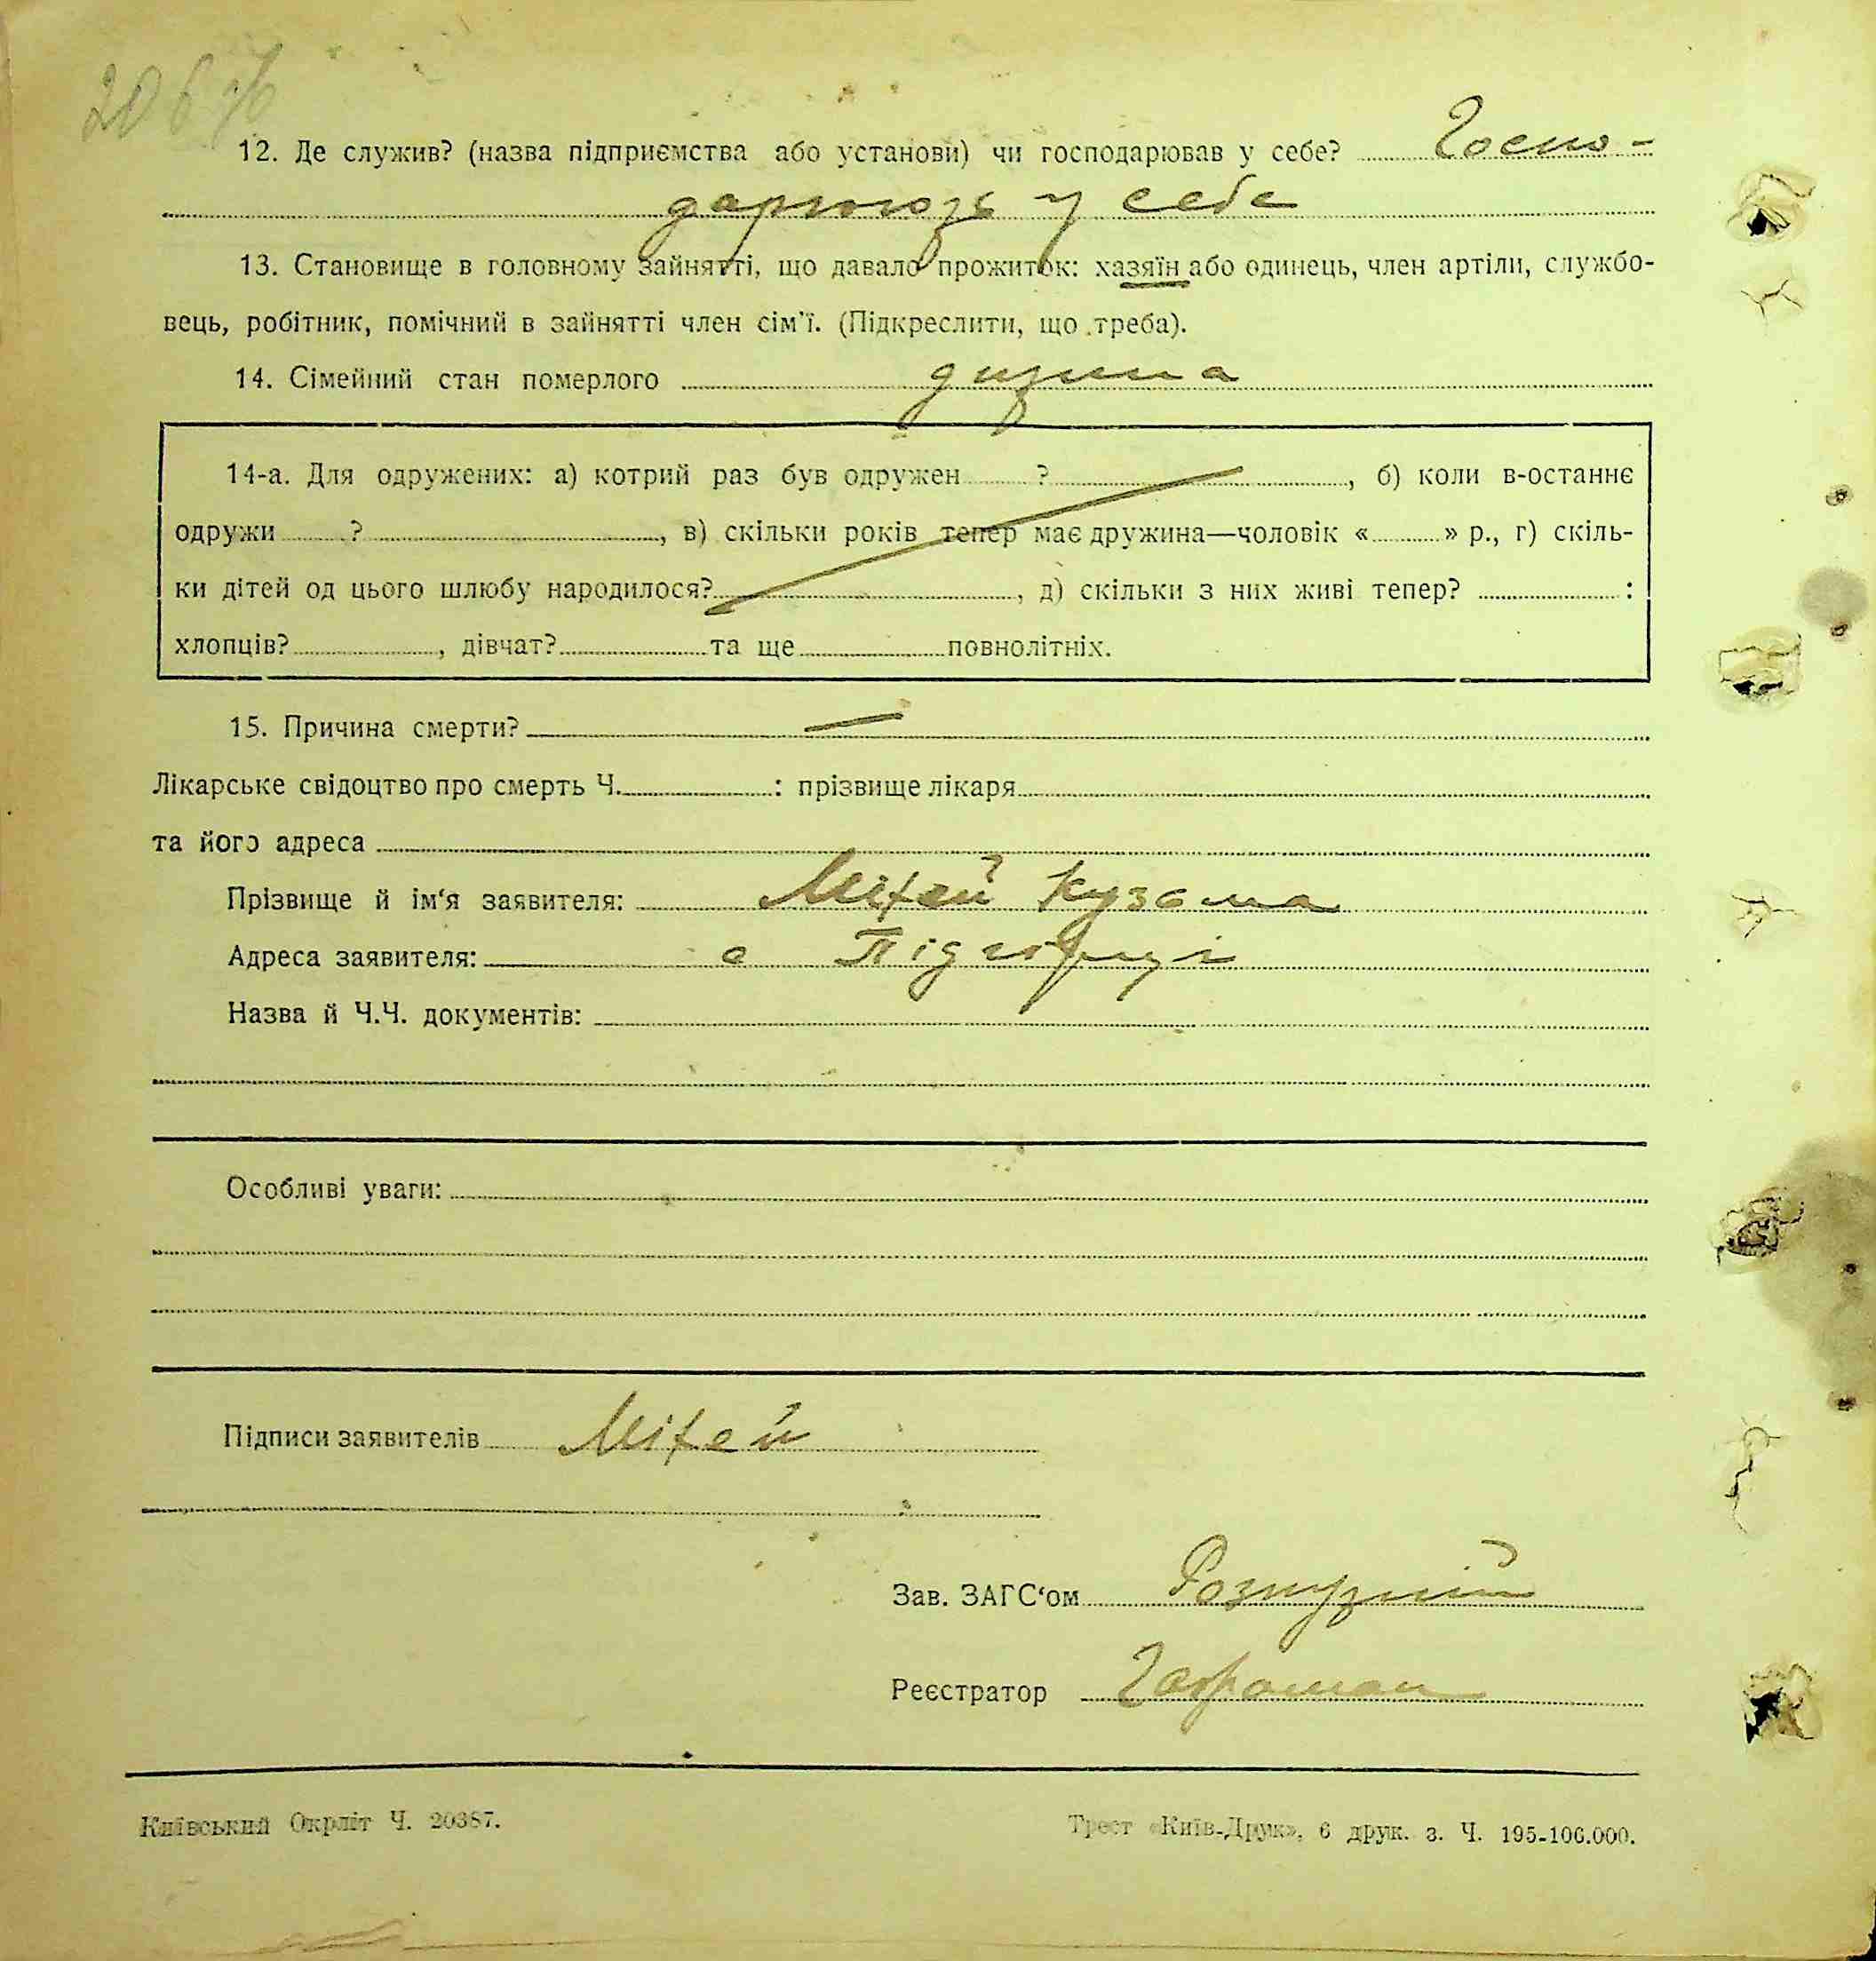 12. Де служив? (назва підприємства або установи) чи господарював у себе? Госпо-
дарював у себе
13. Становище в головному зайнятті, що давало прожиток: хазяїн або одинець, член артіли, службо-
вець, робітник, помічний в зайнятті член сім'ї. (Підкреслити, що треба).
14. Сімейний стан померлого дитина
14-а. Для одружених: а) котрий раз був одружен ? , б) коли в-останнє
одружи ? , в) скільки років тепер має дружина—чоловік « » р., г) скіль-
ки дітей од цього шлюбу народилося? , д) скільки з них живі тепер? :
хлопців? , дівчат? та ще повнолітніх.
15. Причина смерти? —
Лікарське свідоцтво про смерть Ч. : прізвище лікаря
та його адреса
Прізвище й ім'я заявителя: Кузьма
Адреса заявителя: с Підгірці
Назва й Ч.Ч. документів:
Особливі уваги:
Підписи заявителів
Зав. ЗАГС'ом
Реєстратор
Київський Окрліт Ч. 20387.
Трест «Київ-Друк», 6 друк. з. Ч. 195-106.000.